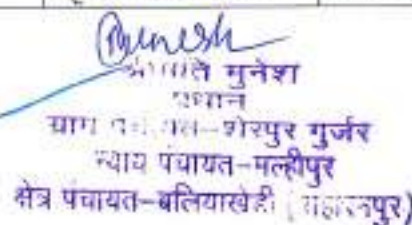 मुनेश
प्रधान
ग्राम पंचायत-शेरपुर गुर्जर
न्याय पंचायत-मल्हीपुर
क्षेत्र पंचायत-बलियाखेडी (सहारनपुर)